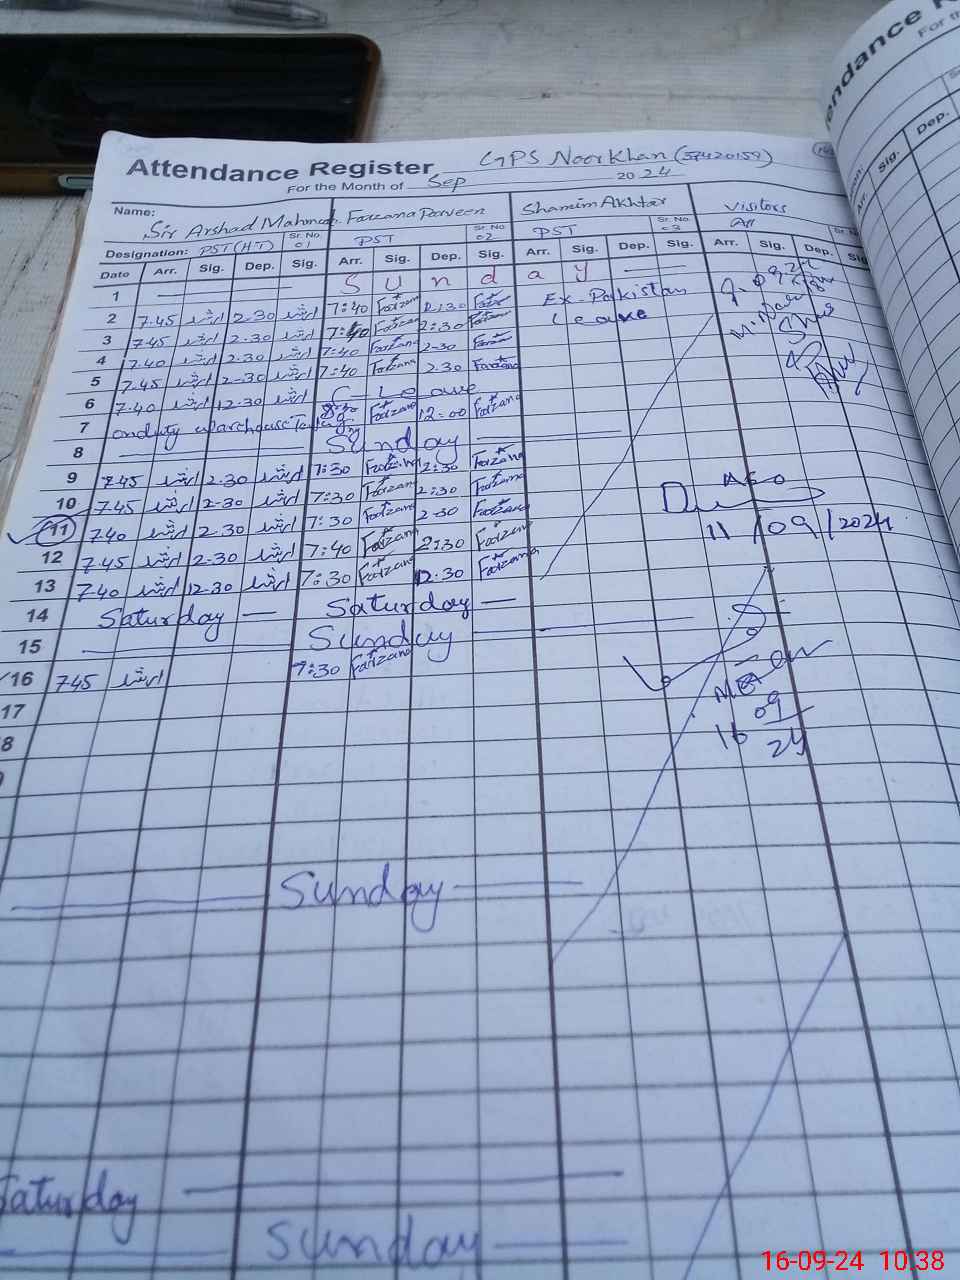 Attendance Register GPS Noor Khan (37420159)
For the Month of Sep 2024
Name: Sir Arshad Mahmood Farzana Parveen Shamim Akhtar Visitors
Designation: PST (HT) Sr. No. 01 PST Sr. No. 02 PST Sr. No. 03 Att
Date Arr. Sig. Dep. Sig. Arr. Sig. Dep. Sig. Arr. Sig. Dep. Sig. Arr. Sig. Dep. Sig.
1 Sunday
2 7.45 ارشد 2.30 ارشد 7:40 Farzana 2:30 Farzana Ex-Pakistan
3 7.45 ارشد 2.30 ارشد 7:40 Farzana 2:30 Farzana Leave
4 7.40 ارشد 2.30 ارشد 7:40 Farzana 2.30 Farzana
5 7.45 ارشد 2.30 ارشد 7:40 Farzana 2.30 Farzana
6 7.40 ارشد 12.30 ارشد C - Leave
7 on duty warehouse Farzana 12:00 Farzana
8 Sunday
9 7.45 ارشد 2.30 ارشد 7:30 Farzana 2:30 Farzana
10 7.45 ارشد 2.30 ارشد 7:30 Farzana 2:30 Farzana AEO
11 7.40 ارشد 2.30 ارشد 7:30 Farzana 2:30 Farzana 11/09/2024
12 7.45 ارشد 2.30 ارشد 7:40 Farzana 2:30 Farzana
13 7.40 ارشد 12.30 ارشد 7:30 Farzana 12.30 Farzana
14 Saturday Saturday
15 Sunday
16 7.45 ارشد 7:30 Farzana
17
16 09 24
8
Sunday
Saturday
Sunday
endance R
For th
Dep.
Sig.
Arr.
16-09-24 10:38